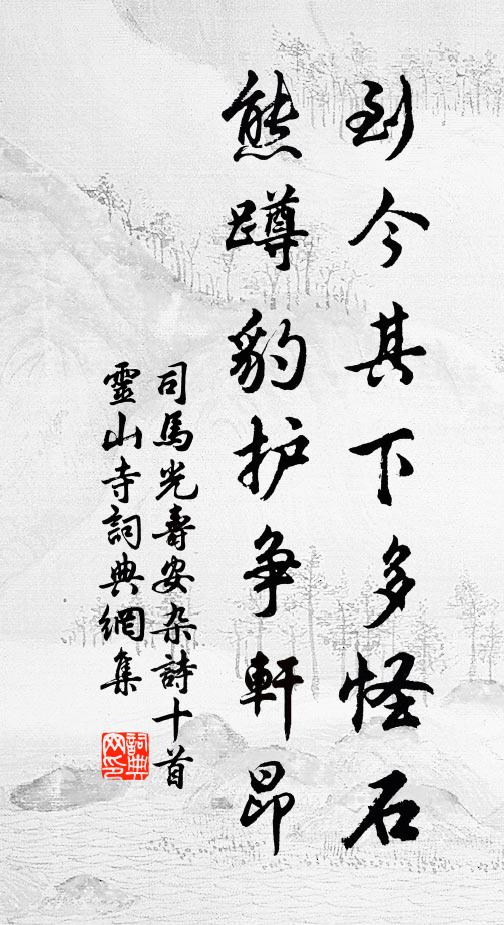 到今其下多怪石
熊蹲豹护争軒昂
司馬光壽安杂詩十首
靈山寺詞典網集
詞典
网印